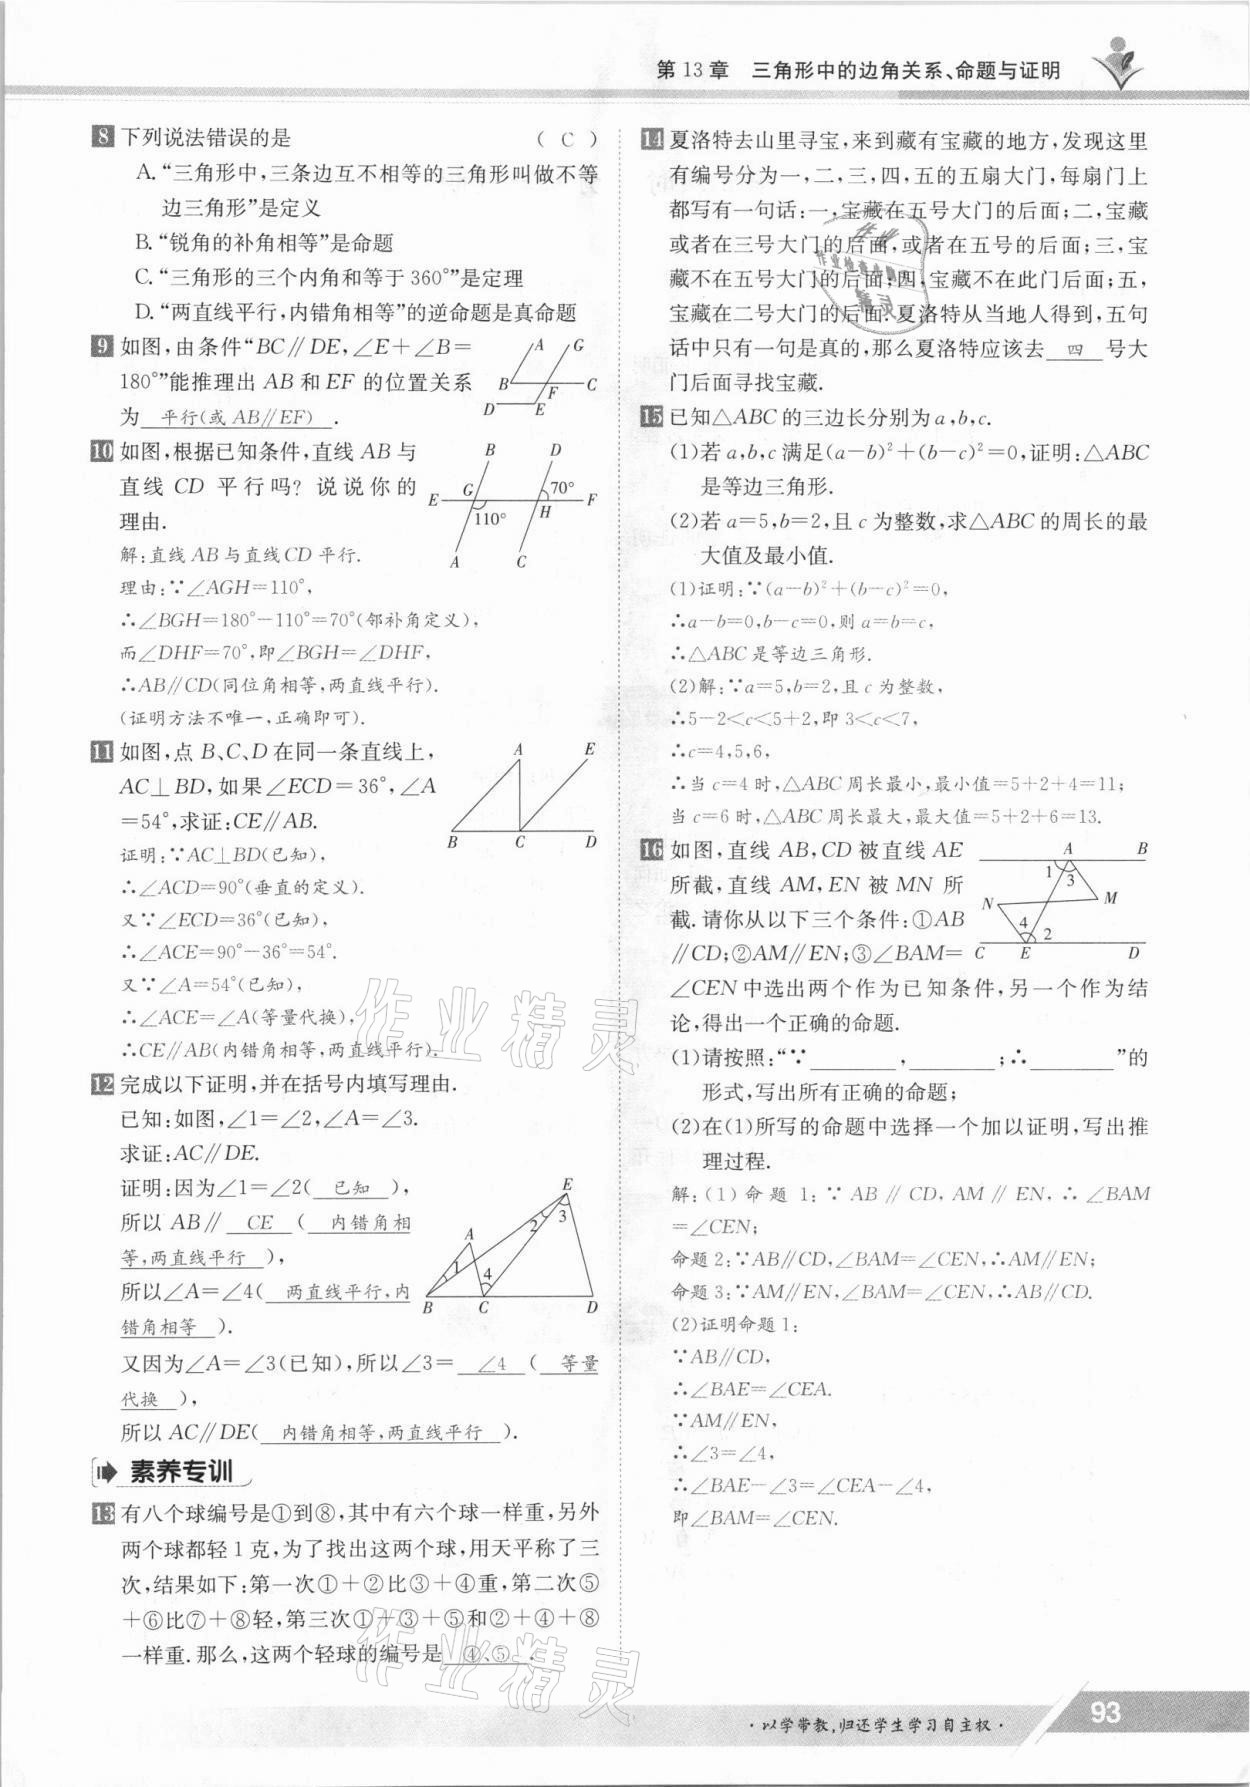 第 13 章 三角形中的边角关系、命题与证明
8 下列说法错误的是 ( C )
A.“三角形中,三条边互不相等的三角形叫做不等
边三角形”是定义
B.“锐角的补角相等”是命题
C.“三角形的三个内角和等于 360°”是定理
D.“两直线平行,内错角相等”的逆命题是真命题
9 如图,由条件“BC∥DE,∠E+∠B=
180°”能推理出 AB 和 EF 的位置关系
为 平行(或 AB∥EF) .
A G
B F C
D E
10 如图,根据已知条件,直线 AB 与
直线 CD 平行吗? 说说你的
理由.
B D
E G 70° F
110° H
A C
解:直线 AB 与直线 CD 平行.
理由:∵∠AGH=110°,
∴∠BGH=180°-110°=70°(邻补角定义),
而∠DHF=70°,即∠BGH=∠DHF,
∴AB∥CD(同位角相等,两直线平行).
(证明方法不唯一,正确即可).
11 如图,点 B、C、D 在同一条直线上,
AC⊥BD,如果∠ECD=36°,∠A
=54°,求证:CE∥AB.
A E
B C D
证明:∵AC⊥BD(已知),
∴∠ACD=90°(垂直的定义).
又∵∠ECD=36°(已知),
∴∠ACE=90°-36°=54°.
又∵∠A=54°(已知),
∴∠ACE=∠A(等量代换),
∴CE∥AB(内错角相等,两直线平行).
12 完成以下证明,并在括号内填写理由.
已知:如图,∠1=∠2,∠A=∠3.
求证:AC∥DE.
证明:因为∠1=∠2( 已知 ),
所以 AB∥ CE ( 内错角相
等,两直线平行 ),
所以∠A=∠4( 两直线平行,内
错角相等 ).
E
2 3
A
1 4
B C D
又因为∠A=∠3(已知),所以∠3= ∠4 ( 等量
代换 ),
所以 AC∥DE( 内错角相等,两直线平行 ).
素养专训
13 有八个球编号是①到⑧,其中有六个球一样重,另外
两个球都轻 1 克,为了找出这两个球,用天平称了三
次,结果如下:第一次①+②比③+④重,第二次⑤
+⑥比⑦+⑧轻,第三次①+③+⑤和②+④+⑧
一样重.那么,这两个轻球的编号是 ④、⑤ .
14 夏洛特去山里寻宝,来到藏有宝藏的地方,发现这里
有编号分为一,二,三,四,五的五扇大门,每扇门上
都写有一句话:一,宝藏在五号大门的后面;二,宝藏
或者在三号大门的后面,或者在五号的后面;三,宝
藏不在五号大门的后面;四,宝藏不在此门后面;五,
宝藏在二号大门的后面.夏洛特从当地人得到,五句
话中只有一句是真的,那么夏洛特应该去 四 号大
门后面寻找宝藏.
15 已知△ABC 的三边长分别为 a,b,c.
(1)若 a,b,c 满足(a-b)²+(b-c)²=0,证明:△ABC
是等边三角形.
(2)若 a=5,b=2,且 c 为整数,求△ABC 的周长的最
大值及最小值.
(1)证明:∵(a-b)²+(b-c)²=0,
∴a-b=0,b-c=0,则 a=b=c,
∴△ABC 是等边三角形.
(2)解:∵a=5,b=2,且 c 为整数,
∴5-2<c<5+2,即 3<c<7,
∴c=4,5,6,
∴当 c=4 时,△ABC 周长最小,最小值=5+2+4=11;
当 c=6 时,△ABC 周长最大,最大值=5+2+6=13.
16 如图,直线 AB,CD 被直线 AE
所截,直线 AM,EN 被 MN 所
截.请你从以下三个条件:①AB
∥CD;②AM∥EN;③∠BAM=
A B
1 3
N M
4 2
C E D
∠CEN 中选出两个作为已知条件,另一个作为结
论,得出一个正确的命题.
(1)请按照:“∵________,________;∴________”的
形式,写出所有正确的命题;
(2)在(1)所写的命题中选择一个加以证明,写出推
理过程.
解:(1)命题 1:∵AB∥CD,AM∥EN,∴∠BAM
=∠CEN;
命题 2:∵AB∥CD,∠BAM=∠CEN,∴AM∥EN;
命题 3:∵AM∥EN,∠BAM=∠CEN,∴AB∥CD.
(2)证明命题 1:
∵AB∥CD,
∴∠BAE=∠CEA.
∵AM∥EN,
∴∠3=∠4,
∴∠BAE-∠3=∠CEA-∠4,
即∠BAM=∠CEN.
作业精灵
作业精灵
·以学带教,归还学生学习自主权·
93